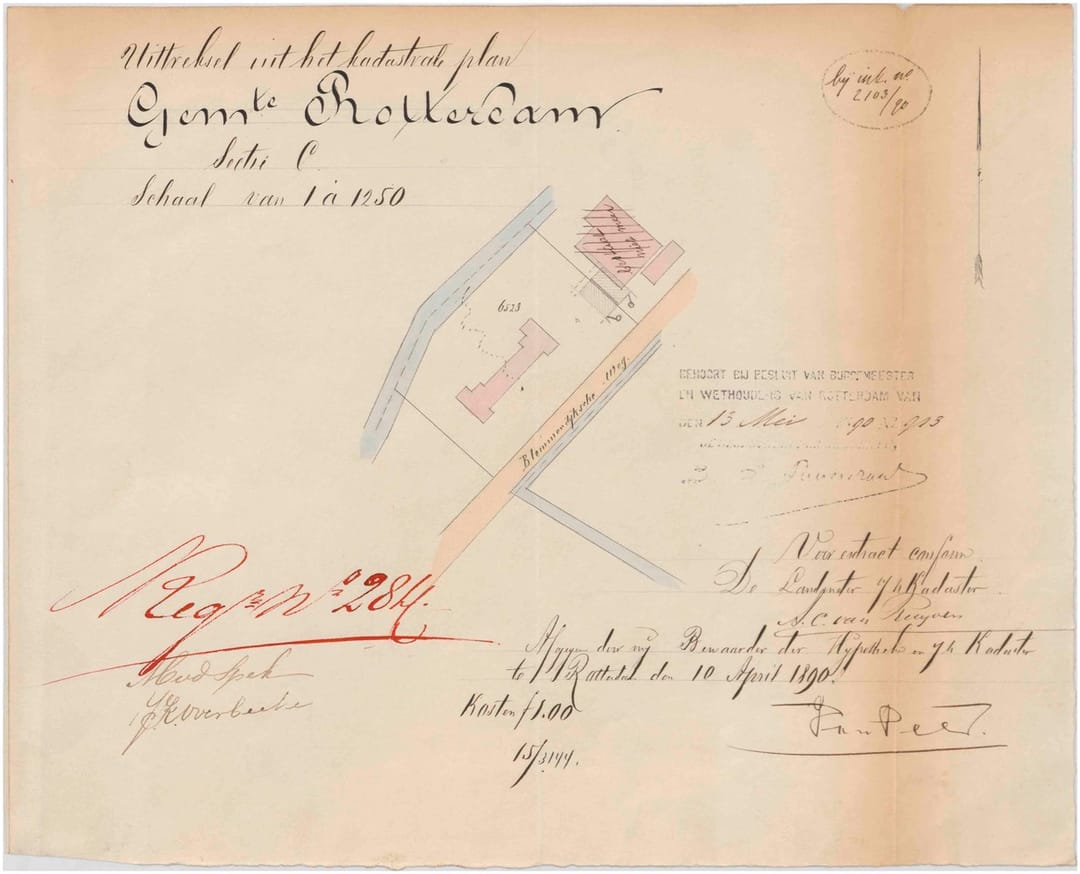 Uittreksel uit het kadastrale plan
Gemte Rotterdam
Sectie C.
Schaal van 1 à 1250
bij ink. no.
2103/90
bestaat
niet meer
6523
Blommendijksche Weg.
BEHOORT BIJ BESLUIT VAN BURGEMEESTER
EN WETHOUDERS VAN ROTTERDAM VAN
DEN 13 Mei
Voor extract conform
De Landmeter v/h Kadaster
A. C. van
Regr No 284.
Afgegeven door mij Bewaarder der Hypotheken en v/h Kadaster
te Rotterdam den 10 April 1890.
Kosten f 1.00
15/3144.